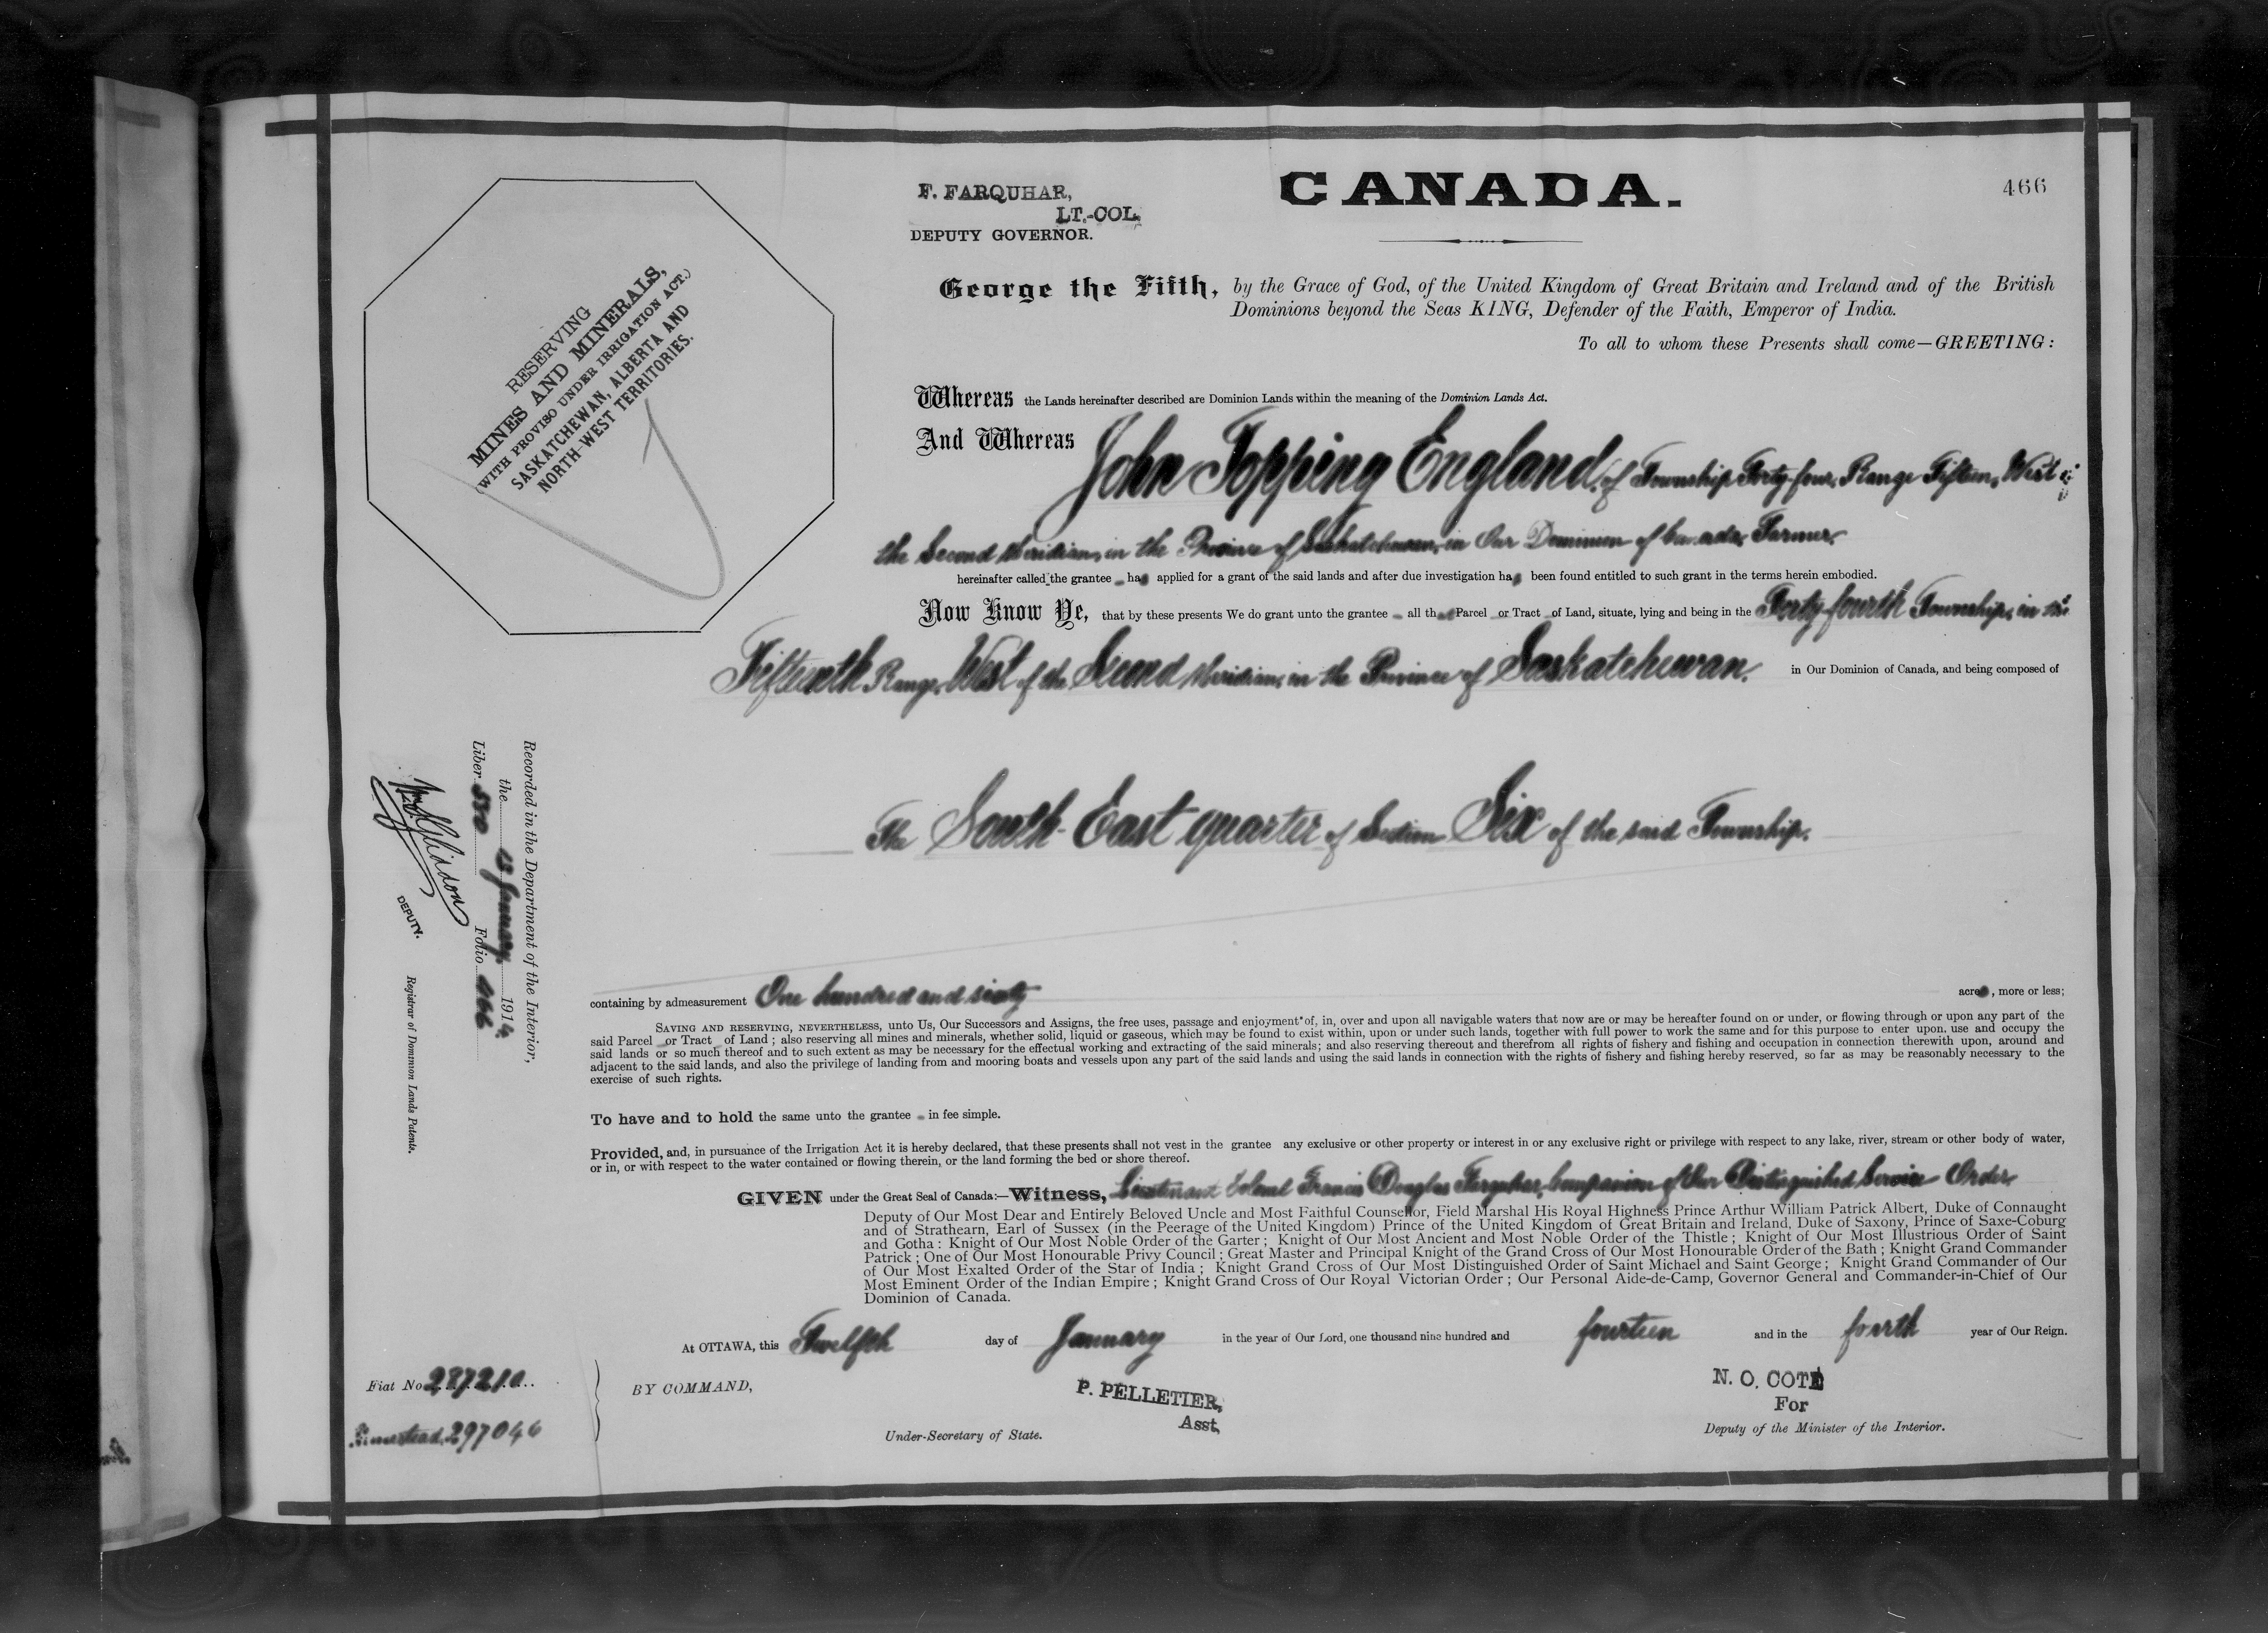 466
F. FARQUHAR,
LT.-COL.
DEPUTY GOVERNOR.
CANADA.
RESERVING
MINES AND MINERALS,
(WITH PROVISO UNDER IRRIGATION ACT.)
SASKATCHEWAN, ALBERTA AND
NORTH-WEST TERRITORIES.
George the Fifth, by the Grace of God, of the United Kingdom of Great Britain and Ireland and of the British
Dominions beyond the Seas KING, Defender of the Faith, Emperor of India.
To all to whom these Presents shall come—GREETING:
Whereas the Lands hereinafter described are Dominion Lands within the meaning of the Dominion Lands Act.
And Whereas John Topping England, of Township Forty-four, Range Fifteen, West of
the Second Meridian, in the Province of Saskatchewan, in Our Dominion of Canada, Farmer,
hereinafter called the grantee has applied for a grant of the said lands and after due investigation has been found entitled to such grant in the terms herein embodied.
Now Know Ye, that by these presents We do grant unto the grantee all that Parcel or Tract of Land, situate, lying and being in the Forty-fourth Township, in the
Fifteenth Range, West of the Second Meridian, in the Province of Saskatchewan, in Our Dominion of Canada, and being composed of
The South-East quarter of Section Six of the said Township.
containing by admeasurement One hundred and sixty acres, more or less;
SAVING AND RESERVING, NEVERTHELESS, unto Us, Our Successors and Assigns, the free uses, passage and enjoyment of, in, over and upon all navigable waters that now are or may be hereafter found on or under, or flowing through or upon any part of the
said Parcel or Tract of Land; also reserving all mines and minerals, whether solid, liquid or gaseous, which may be found to exist within, upon or under such lands, together with full power to work the same and for this purpose to enter upon, use and occupy the
said lands or so much thereof and to such extent as may be necessary for the effectual working and extracting of the said minerals; and also reserving thereout and therefrom all rights of fishery and fishing and occupation in connection therewith upon, around and
adjacent to the said lands, and also the privilege of landing from and mooring boats and vessels upon any part of the said lands and using the said lands in connection with the rights of fishery and fishing hereby reserved, so far as may be reasonably necessary to the
exercise of such rights.
To have and to hold the same unto the grantee in fee simple.
Provided, and, in pursuance of the Irrigation Act it is hereby declared, that these presents shall not vest in the grantee any exclusive or other property or interest in or any exclusive right or privilege with respect to any lake, river, stream or other body of water,
or in, or with respect to the water contained or flowing therein, or the land forming the bed or shore thereof.
GIVEN under the Great Seal of Canada:—Witness, Lieutenant Colonel Francis Douglas Farquhar, Companion of Our Distinguished Service Order,
Deputy of Our Most Dear and Entirely Beloved Uncle and Most Faithful Counsellor, Field Marshal His Royal Highness Prince Arthur William Patrick Albert, Duke of Connaught
and of Strathearn, Earl of Sussex (in the Peerage of the United Kingdom) Prince of the United Kingdom of Great Britain and Ireland, Duke of Saxony, Prince of Saxe-Coburg
and Gotha: Knight of Our Most Noble Order of the Garter; Knight of Our Most Ancient and Most Noble Order of the Thistle; Knight of Our Most Illustrious Order of Saint
Patrick; One of Our Most Honourable Privy Council; Great Master and Principal Knight of the Grand Cross of Our Most Honourable Order of the Bath; Knight Grand Commander
of Our Most Exalted Order of the Star of India; Knight Grand Cross of Our Most Distinguished Order of Saint Michael and Saint George; Knight Grand Commander of Our
Most Eminent Order of the Indian Empire; Knight Grand Cross of Our Royal Victorian Order; Our Personal Aide-de-Camp, Governor General and Commander-in-Chief of Our
Dominion of Canada.
At OTTAWA, this Twelfth day of January in the year of Our Lord, one thousand nine hundred and fourteen and in the fourth year of Our Reign.
BY COMMAND,
P. PELLETIER,
Asst.
Under-Secretary of State.
N. O. COTÉ
For
Deputy of the Minister of the Interior.
Recorded in the Department of the Interior,
the 13 January, 1914.
Liber Folio 466
DEPUTY.
Registrar of Dominion Lands Patents.
Fiat No. 287210
Homestead, 297046